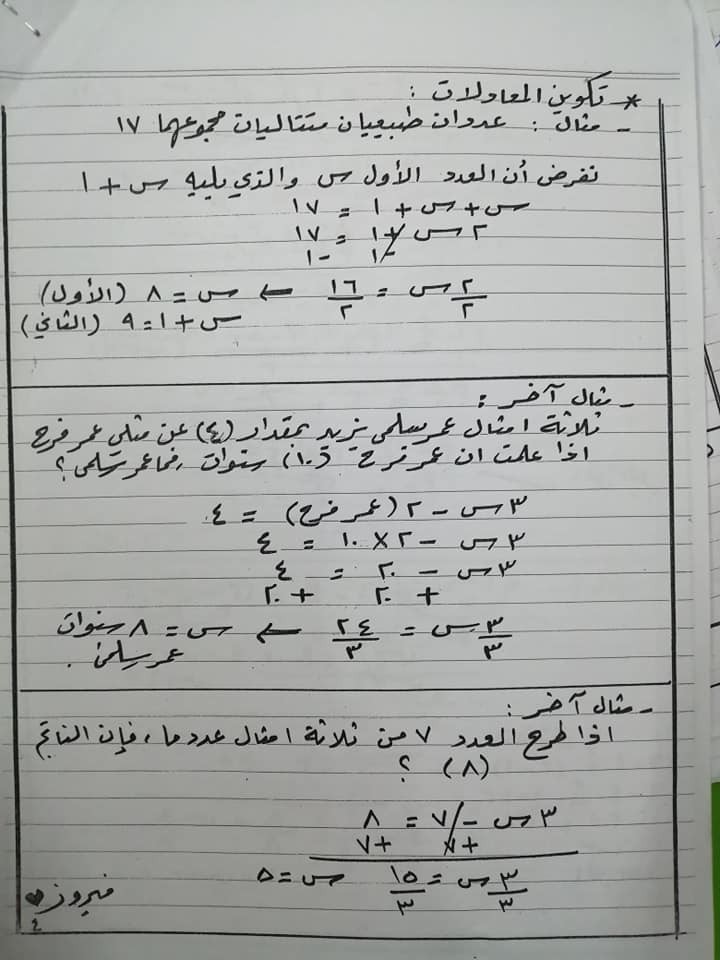 * تكوين المعادلات :
- مثال : عددان طبيعيان متتاليان مجموعهما ١٧
نفرض أن العدد الأول س والذي يليه س + ١
س + س + ١ = ١٧
٢س + ١ = ١٧
-١ -١
٢س/٢ = ١٦/٢ ← س = ٨ (الأول)
س + ١ = ٩ (الثاني)
- مثال آخر :
ثلاثة امثال عمر سلمى يزيد بمقدار (٤) عن مثلي عمر فرح
اذا علمت ان عمر فرح (١٠) سنوات ، فما عمر سلمى ؟
٣س - ٢ (عمر فرح) = ٤
٣س - ٢ × ١٠ = ٤
٣س - ٢٠ = ٤
+ ٢٠ + ٢٠
٣س/٣ = ٢٤/٣ ← س = ٨ سنوات
عمر سلمى .
- مثال آخر :
اذا طرح العدد ٧ من ثلاثة امثال عدد ما ، فإن الناتج
(٨) ؟
٣س - ٧ = ٨
+٧ +٧
٣س/٣ = ١٥/٣ س = ٥
فيروز ♥
٤